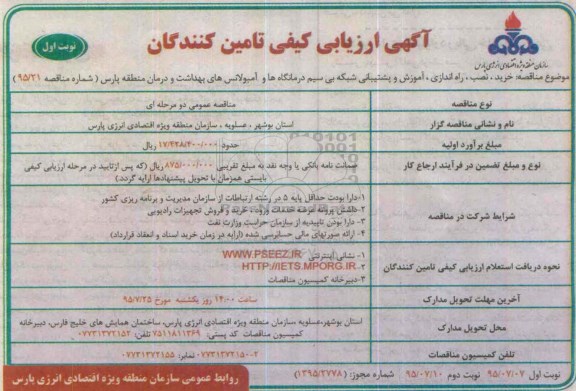 آگهی ارزیابی کیفی تامین کنندگان
نوبت اول
سازمان منطقه ویژه اقتصادی انرژی پارس
موضوع مناقصه: خرید، نصب، راه اندازی، آموزش و پشتیبانی شبکه بی سیم درمانگاه ها و آمبولانس های بهداشت و درمان منطقه پارس (شماره مناقصه ۹۵/۲۱)
نوع مناقصه
مناقصه عمومی دو مرحله ای
نام و نشانی مناقصه گزار
استان بوشهر، عسلویه، سازمان منطقه ویژه اقتصادی انرژی پارس
مبلغ برآورد اولیه
حدود: ۱۷/۴۲۸/۴۰۰/۰۰۰ ریال
نوع و مبلغ تضمین در فرآیند ارجاع کار
ضمانت نامه بانکی یا وجه نقد به مبلغ تقریبی ۸۷۵/۰۰۰/۰۰۰ ریال (که پس از تایید در مرحله ارزیابی کیفی
بایستی همزمان با تحویل پیشنهادها ارایه گردد.)
شرایط شرکت در مناقصه
۱-دارا بودن حداقل پایه ۵ در رشته ارتباطات از سازمان مدیریت و برنامه ریزی کشور
۲-داشتن پروانه عرضه خدمات ورود، خرید و فروش تجهیزات رادیویی
۳- دارا بودن تاییدیه از سازمان حراست وزارت نفت
۴- ارائه صورتهای مالی حسابرسی شده (ارایه در زمان خرید اسناد و انعقاد قرارداد)
نحوه دریافت استعلام ارزیابی کیفی تامین کنندگان
۱- نشانی اینترنتی WWW.PSEEZ.IR
۲- HTTP://IETS.MPORG.IR
۳-دبیرخانه کمیسیون مناقصات
آخرین مهلت تحویل مدارک
ساعت ۱۴:۰۰ روز یکشنبه مورخ ۹۵/۷/۲۵
محل تحویل مدارک
استان بوشهر،عسلویه سازمان منطقه ویژه اقتصادی انرژی پارس، ساختمان همایش های خلیج فارس، دبیرخانه
کمیسیون مناقصات کد پستی: ۷۵۱۱۸۱۱۳۶۹ تلفن: ۰۷۷۳۱۳۷۲۱۵۲
تلفن کمیسیون مناقصات
۰۷۷۳۱۳۷۲۱۵۰-۲ نمابر: ۰۷۷۳۱۳۷۲۱۵۵
نوبت اول ۹۵/۰۷/۰۷ نوبت دوم ۹۵/۰۷/۱۰ شماره مجوز: (۱۳۹۵/۲۷۷۸)
روابط عمومی سازمان منطقه ویژه اقتصادی انرژی پارس